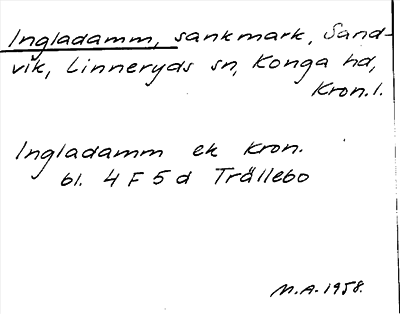 Ingladamm, sankmark, Sand-
vik, Linneryds sn, Konga hd,
Kron. l.
Ingladamm ek kron.
bl. 4 F 5 d Trällebo
M.A. 1958.